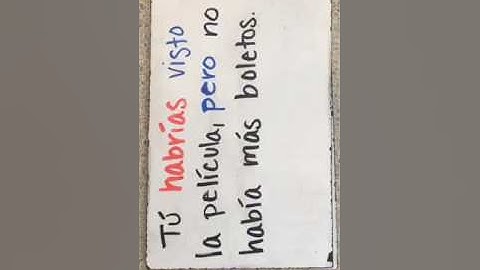 Tú habrías visto
la película, pero no
había más boletos.